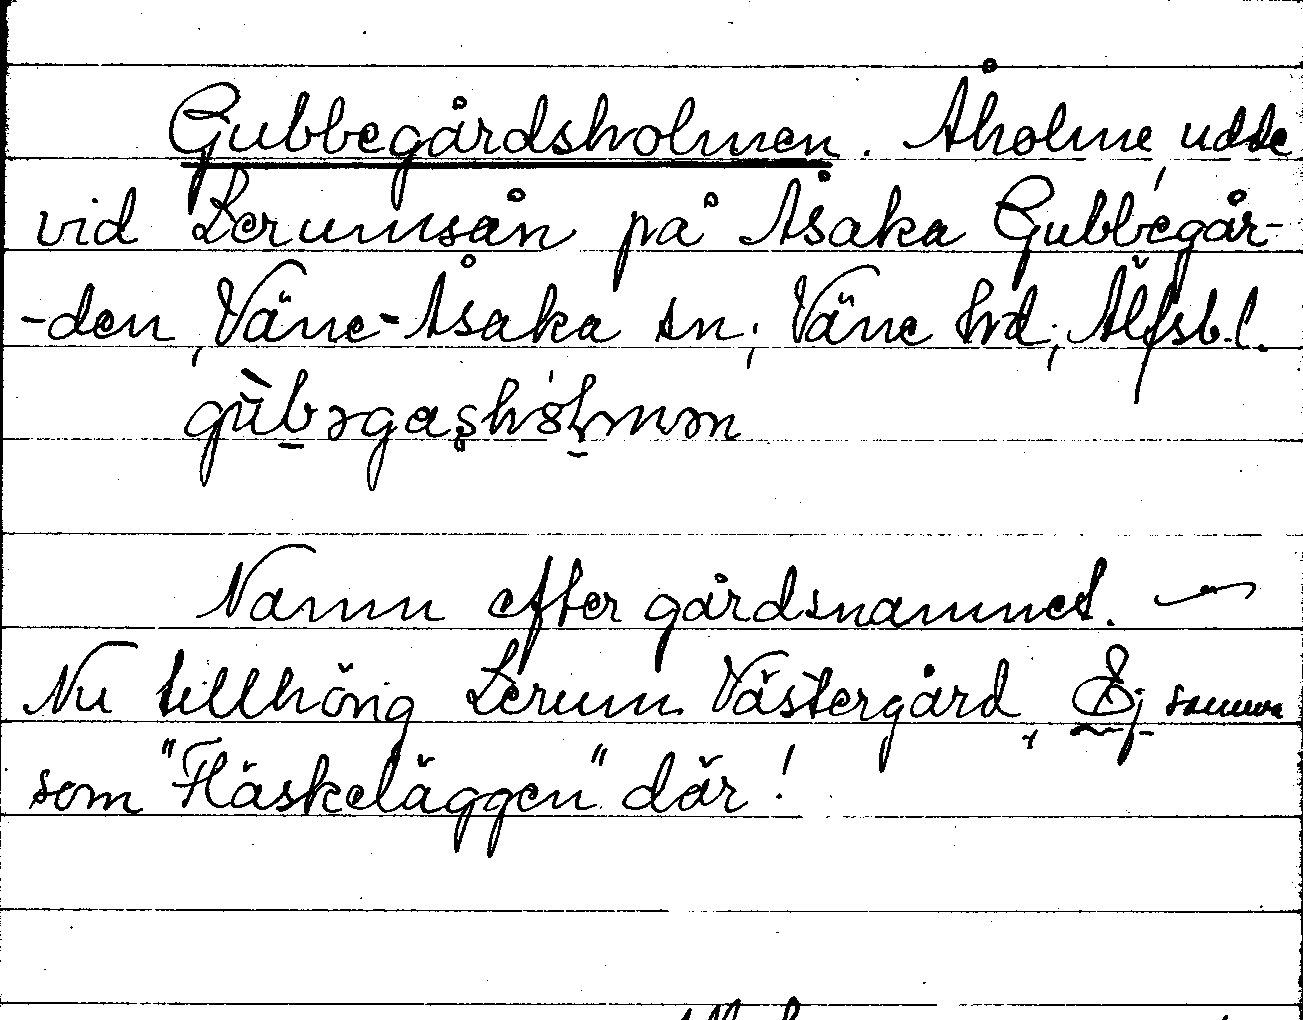 Gubbegårdsholmen. Åholme, udde
vid Lerumsån på Åsaka Gubbegår-
-den, Väne-Åsaka sn; Väne hd; Älfsb.l.
gù̀bəgaʂhólmən
Namn efter gårdsnamnet. —
Nu tillhörig Lerum Västergård, Ej samma
som "Fläskeläggen" där!